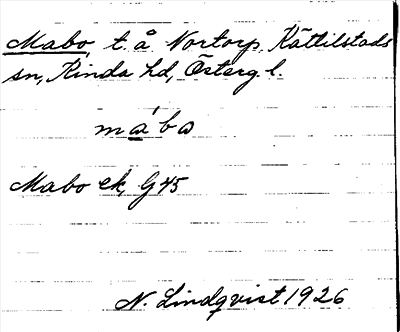 Mabo t. å Nortorp, Kättilstads
sn, Kinda hd, Österg. l.
mábo
Mabo ek, G 45
N. Lindqvist 1926